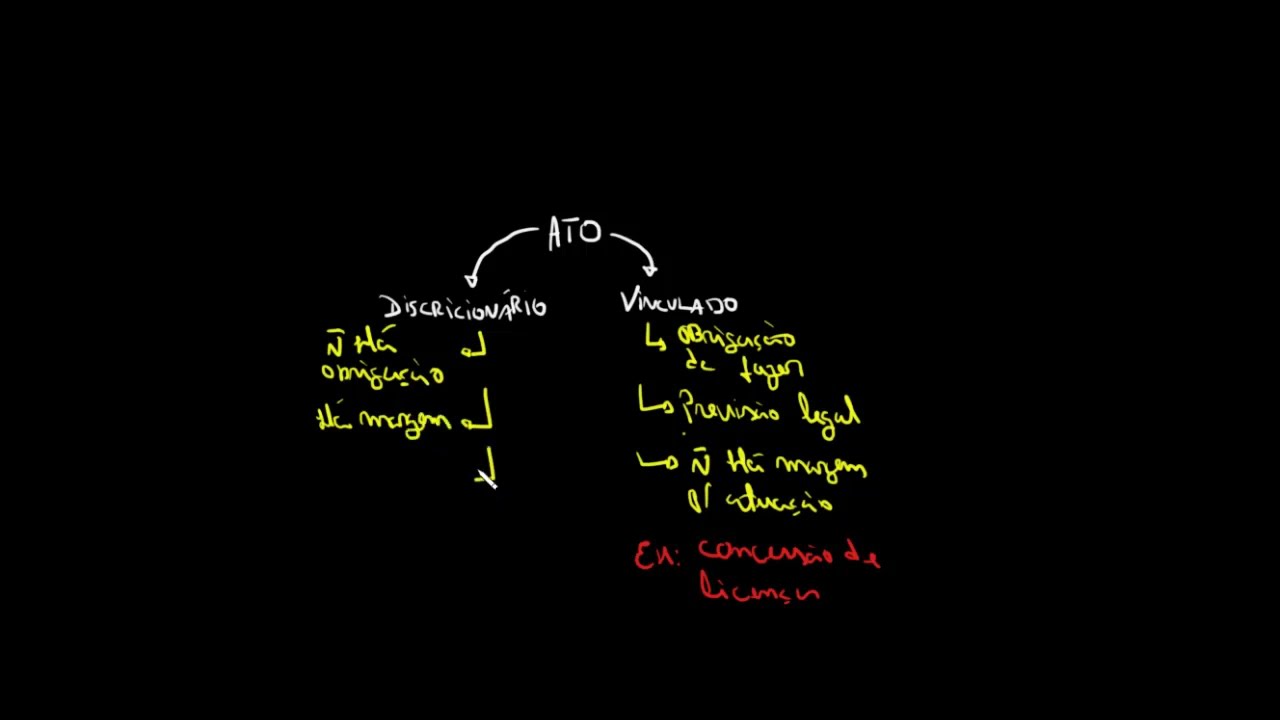 ATO
DISCRICIONÁRIO
Ñ Há
obrigação
Há margem
VINCULADO
obrigação
de fazer
Previsão legal
Ñ Há margem
p/ atuação
Ex: concessão de
licença